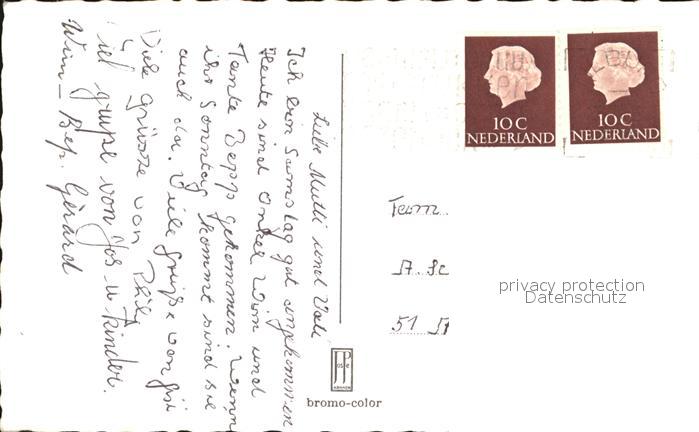 Liebe Mutti und Vati
Ich bin Samstag gut angekommen
Heute sind Onkel Wim und
Tante Bep gekommen. Wenn
ihr Sonntag kommt sind sie
auch da. Viele grüße von
Viele Grüsse von
Viel grüße von Jos u Kinder.
Wim - Bep. Gérard
10 C
NEDERLAND
10 C
NEDERLAND
Fam.
51
privacy protection
Datenschutz
bromo-color